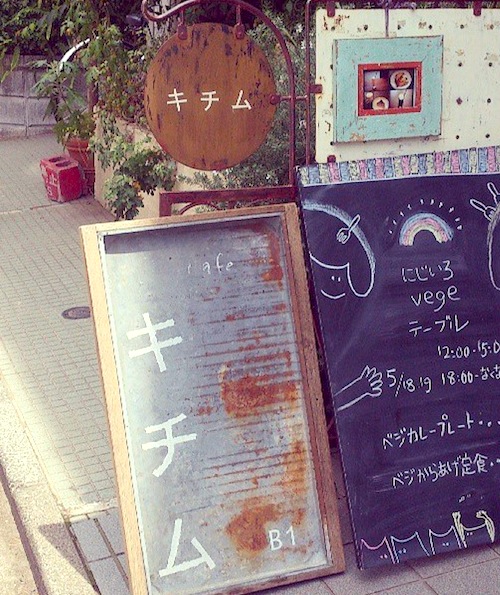 キチム
cafe
キチム
B1
にじいろ
vege
テーブル
12:00-15:0
5/18.19 18:00-なくな
ベジカレープレート・・・
ベジからあげ定食・・